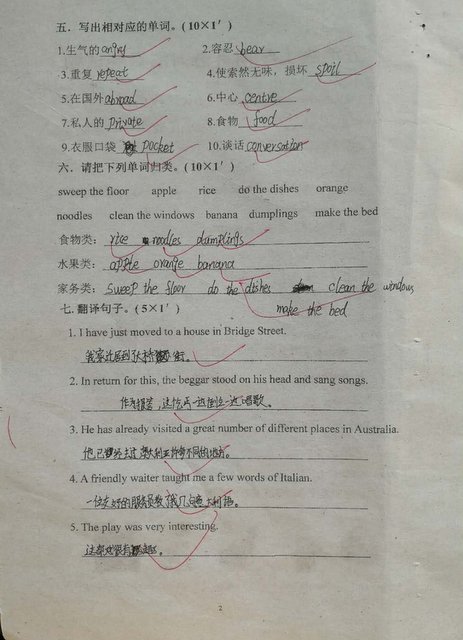 五．写出相对应的单词。(10×1′)
1.生气的 angry 2.容忍 bear
3.重复 repeat 4.使索然无味，损坏 spoil
5.在国外 abroad 6.中心 centre
7.私人的 private 8.食物 food
9.衣服口袋 pocket 10.谈话 conversation
六．请把下列单词归类。(10×1′)
sweep the floor apple rice do the dishes orange
noodles clean the windows banana dumplings make the bed
食物类： rice noodles dumplings
水果类： apple orange banana
家务类： sweep the floor do the dishes clean the windows
make the bed
七.翻译句子。(5×1′)
1. I have just moved to a house in Bridge Street.
我家
2. In return for this, the beggar stood on his head and sang songs.
作为报答，这 唱歌。
3. He has already visited a great number of different places in Australia.
他已经去过澳大利亚 不同的地方。
4. A friendly waiter taught me a few words of Italian.
一位友好的服务员教我几句意大利语。
5. The play was very interesting.
这部戏很有趣。
2